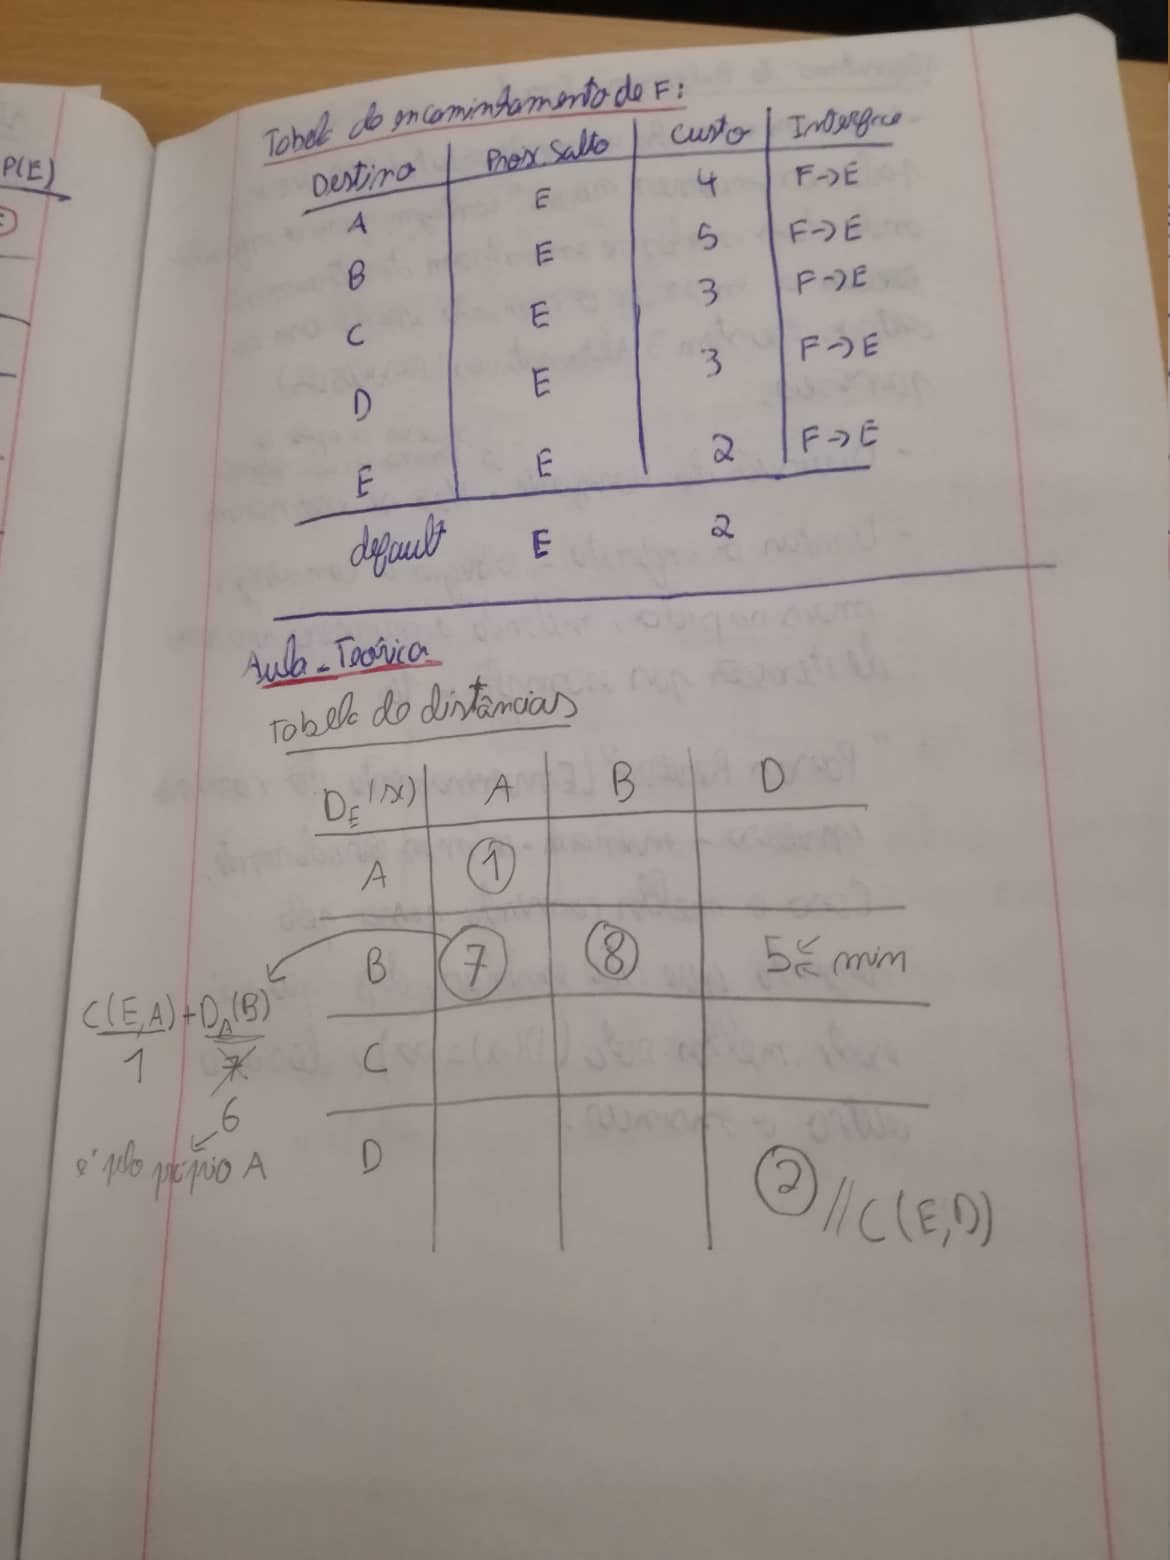 P(E)
Tabela de encaminhamento de F:
Destino Prox. Salto Custo Interface
A E 4 F->E
B E 5 F->E
C E 3 F->E
D E 3 F->E
E E 2 F->E
default E 2
Aula-Teórica
Tabela de distâncias
D_E(,x) A B D
A 1
B 7 8 5 min
C(E,A)+D_A(B)
1 7
6
C
é pelo próprio A
D 2 //C(E,D)